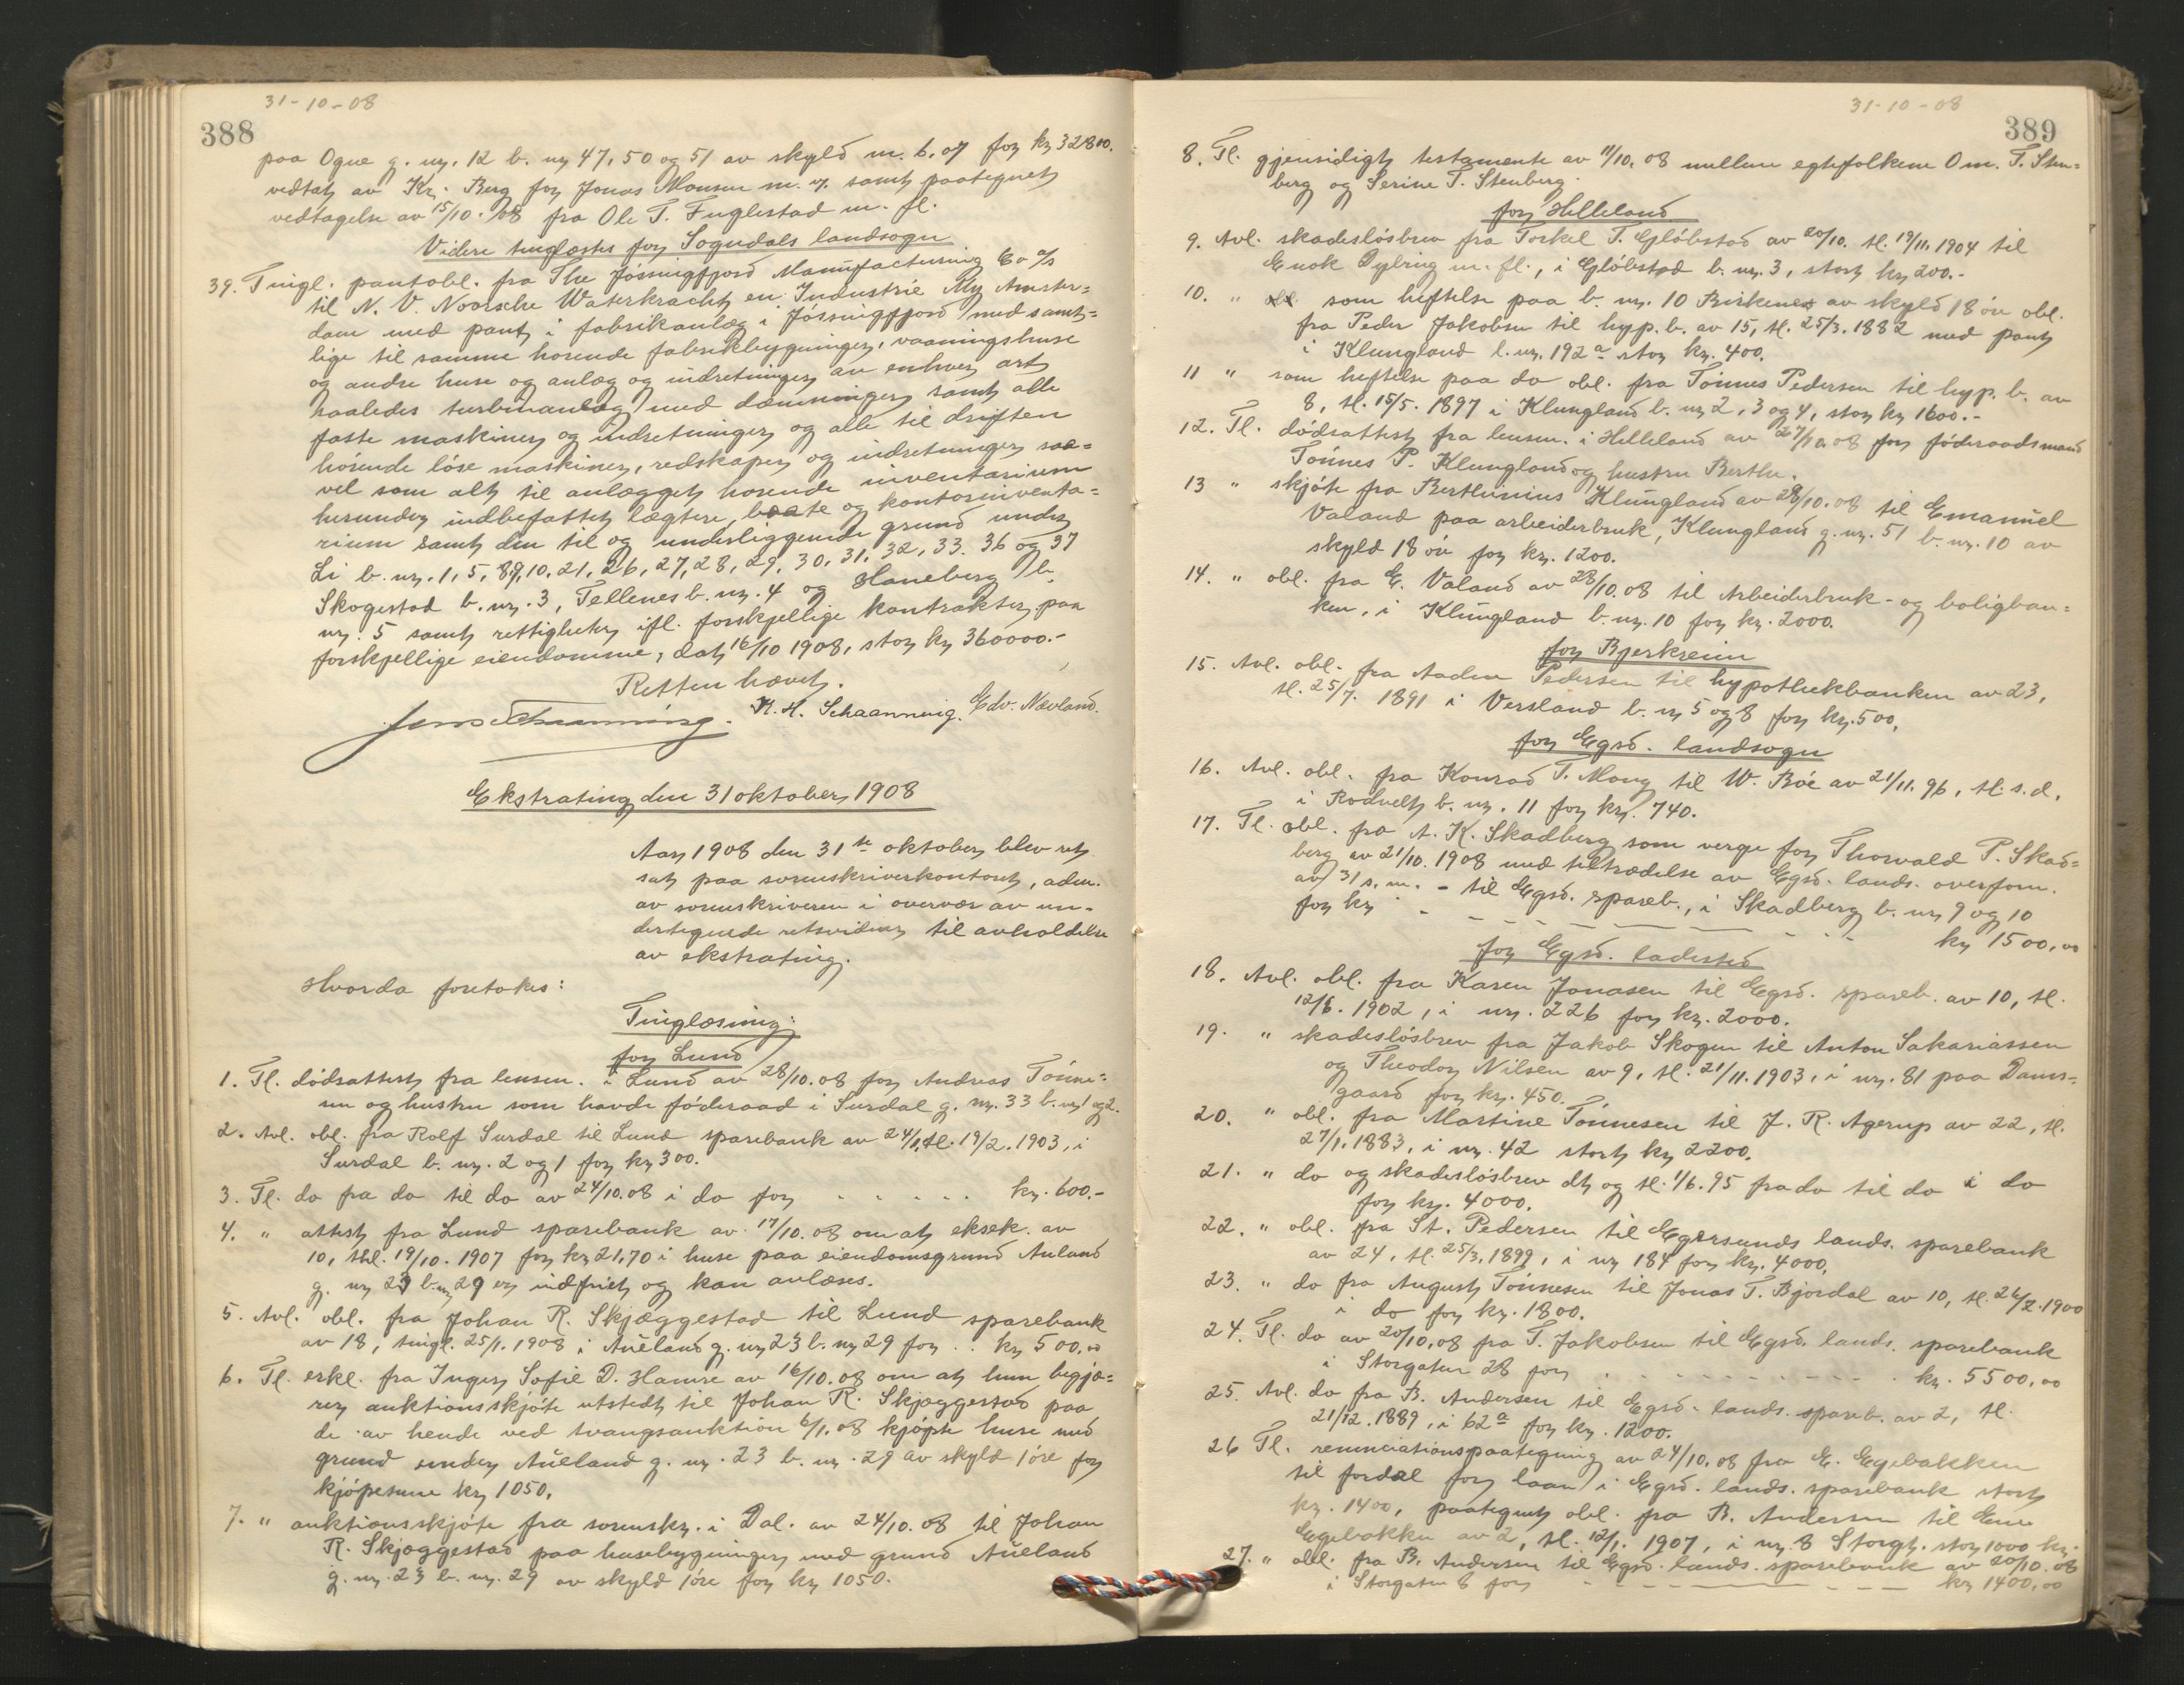 31-10-08
388
paa Ogne g. nr. 12 b. nr 47, 50 og 51 av skyld m. 6.07 for kr 32810.
vedtat av Kr. Berg for Jonas Monsen m. v. samt paategnet
vedtagelse av 15/10. 08 fra Ole T. Fuglestad m. fl.
Videre tinglæstes for Sogndals landsogn
39. Tingl. pantobl. fra The Jössingfjord Manufacturing Co a/s
til N. V. Noorsche Waterkracht en Industrie My Amster=
dam med pant i fabrikanlæg i Jössingfjord med samt=
lige til samme hørende fabrikbygninger, vaaningshuse
og andre huse og anlæg og indretninger av enhver art
saaledes turbinanlæg med dæmninger samt alle
faste maskiner og indretninger og alle til driften
hörende löse maskiner, redskaper og indretninger saa=
vel som alt til anlægget hørende inventarium
herunder indbefattet lægtere, baate og kontorinventa=
rium samt den til og underliggende grund under
Li b. nr. 1, 5, 8, 9, 10, 21, 26, 27, 28, 29, 30, 31, 32, 33. 36 og 37
Skogestad b. nr. 3, Tellenes b. nr. 4 og Haneberg b.
nr. 5 samt rettigheter ifl. forskjellige kontrakter paa
forskjellige eiendomme, dat 16/10 1908, stor kr 360000.-
Retten hævet.
K. H. Schaanning. Edv. Nævland.
Ekstrating den 31 oktober 1908
Aar 1908 den 31te oktober blev ret
sat paa sorenskriverkontoret, adm.
av sorenskriveren i overvær av un-
dertegnede retsvidner til avholdelse
av ekstrating.
Hvorda foretokes:
Tinglæsning:
for Lund
1. Tl. dödsattest fra lensm. i Lund av 28/10. 08 for Andreas Tönne=
sen og hustru som havde föderaad i Surdal g. nr. 33 b. nr 1 og 2.
2. Avl. obl. fra Rolf Surdal til Lund sparebank av 24/1, tl. 19/2. 1903, i
Surdal b. nr. 2 og 1 for kr 300.
3. Tl. do fra do til do av 24/10. 08 i do for . . . . . . kr. 600.-
4. " attest fra Lund sparebank av 17/10. 08 om at eksek. av
10, thl. 19/10. 1907 for kr 21,70 i huse paa eiendomsgrund Auland
g. nr 23 b. nr 29 er indfriet og kan avlæses.
5. Avl. obl. fra Johan R. Skjæggestad til Lund sparebank
av 18, tingl. 25/1. 1908 i Aueland g. nr 23 b. nr 29 for . . kr 500,00
6. Tl. erkl. fra Inger Sofie D. Hamre av 16/10. 08 om at hun begjæ=
rer auktionsskjöte utstedt til Johan R. Skjæggestad paa
de av hende ved tvangsauktion 6/1. 08 kjöpte huse med
grund under Aueland g. nr. 23 b. nr. 29 av skyld 1 öre for
kjöpesum kr 1050.
7. " auktionsskjöte fra sorenskr. i Dal. av 24/10. 08 til Johan
R. Skjæggestad paa husebygninger med grund Aueland
g. nr. 23 b. nr. 29 av skyld 1 öre for kr 1050.
31-10-08
389
8. Tl. gjensidigt testamente av 11/10. 08 mellem egtefolkene Om. T. Sten=
berg og Serine T. Stenberg.
for Helleland
9. Avl. skadeslösbrev fra Torkel T. Glöbstad av 20/10. tl. 19/11. 1904 til
Enok Dybing m. fl., i Glöbstad b. nr. 3, stort kr 200.-
10. " som heftelse paa b. nr. 10 Birkenes av skyld 18 öre obl.
fra Peder Jakobsen til hyp. b. av 15, tl. 25/3. 1882 med pant
i Klungland l. nr. 192a stor kr. 400.
11 " som heftelse paa do obl. fra Tönnes Pedersen til hyp. b. av
8, tl. 15/5. 1897 i Klungland b. nr 2, 3 og 4, stor kr 1600.-
12. Tl. dödsattest fra lensm. i Helleland av 27/10. 08 for föderaadsmand
Tönnes P. Klungland og hustru Berthe.
13 " skjöte fra Berthinius Klungland av 28/10. 08 til Emanuel
Valand paa arbeiderbruk, Klungland g. nr. 51 b. nr. 10 av
skyld 18 öre for kr. 1200.
14. " obl. fra E. Valand av 28/10. 08 til Arbeiderbruk- og boligban=
ken, i Klungland b. nr. 10 for kr. 2000.
for Bjerkreim
15. Avl. obl. fra Aaden Pedersen til hypothekbanken av 23,
tl. 25/7. 1891 i Versland b. nr 5 og 8 for kr. 500,
for Egsd. landsogn
16. Avl. obl. fra Konrad T. Mong til W. Böe av 21/11. 96, tl. s. d.
i Rodvelt b. nr. 11 for kr. 740.
17. Tl. obl. fra A. K. Skadberg som verge for Thorvald P. Skad=
berg av 21/10. 1908 med tiltrædelse av Egsd. lands. overform.
av 31 s. m. - til Egsd. spareb., i Skadberg b. nr 9 og 10
for kr . - - - - - - - kr 1500,00
for Egsd. ladested
18. Avl. obl. fra Karen Jonasen til Egsd. spareb. av 10, tl.
12/6. 1902, i nr. 226 for kr. 2000.
19. " skadeslösbrev fra Jakob Skogen til Anton Sakariassen
og Theodor Nilsen av 9, tl. 21/11. 1903, i nr. 81 paa Dams-
gaard for kr. 450.
20. " obl. fra Martine Tönnesen til J. R. Agerup av 22, tl.
27/1. 1883, i nr. 42 stort kr 2200.
21. " do og skadeslösbrev dt og tl. 1/6. 95 fra do til do i do
for kr. 4000.
22. " obl. fra St. Pedersen til Egersunds lands. sparebank
av 24, tl. 25/3. 1899, i nr 184 for kr. 4000.
23. " do fra August Tönnesen til Jonas T. Bjordal av 10, tl. 26/2. 1900
i do for kr. 1800.
24. Tl. do av 20/10. 08 fra T. Jakobsen til Egsd. lands. sparebank
i Storgaten 28 for . . . . . . . . . kr. 5500,00
25. Avl. do fra B. Andersen til Egsd. lands. spareb. av 2, tl.
21/12. 1889, i 62a for kr. 1200.
26 Tl. renunciationspaategning av 24/10. 08 fra E. Egebakken
til fordel for laan i Egsd. lands. sparebank stort
kr. 1400, paategnet obl. fra B. Andersen til Enu
Egebakken av 2, tl. 12/1. 1907, i nr. 8 Storgt. stor 1000 kr.
27. " obl. fra B. Andersen til Egsd. lands. sparebank av 20/10. 08
i Storgaten 8 for - - - - - - kr 1400,00